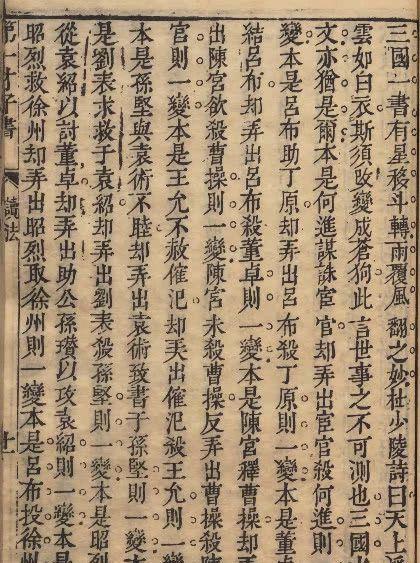 三國一書有星移斗轉雨覆風翻之妙杜少陵詩曰天上浮
雲如白衣斯須改變成蒼狗此言世事之不可測也三國之
文亦猶是爾本是何進謀誅宦官却弄出宦官殺何進則
變本是呂布助丁原却弄出呂布殺丁原則一變本是董卓
結呂布却弄出呂布殺董卓則一變本是陳宮釋曹操却
出陳宮欲殺曹操則一變陳宮未殺曹操反弄出曹操殺
宮則一變本是王允不赦傕汜却弄出傕汜殺王允則一變
本是孫堅與袁術不睦却弄出袁術致書于孫堅則一變
是劉表求救于袁紹却弄出劉表殺孫堅則一變本是昭
從袁紹以討董卓却弄出助公孫瓚以攻袁紹則一變本是
昭烈救徐州却弄出昭烈取徐州則一變本是呂布投徐州
第一才子書
讀法
十一